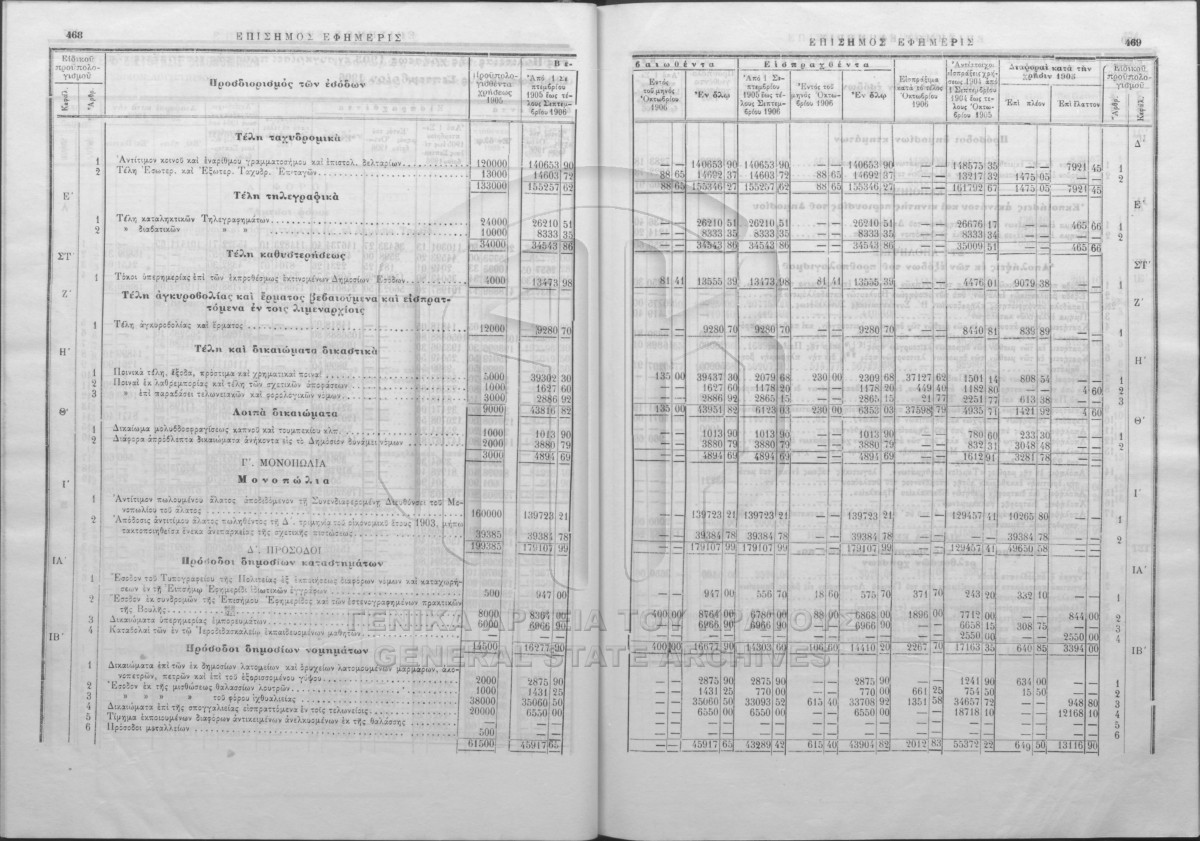 468 ΕΠΙΣΗΜΟΣ ΕΦΗΜΕΡΙΣ
Εἰδικοῦ προϋπολογισμοῦ
Κεφάλ. Ἄρθρ.
Προσδιορισμὸς τῶν ἐσόδων
Προϋπολογισθέντα χρήσεως 1905
Βε-
Ἀπὸ 1 Σεπτεμβρίου 1905 ἕως τέλους Σεπτεμβρίου 1906
Τέλη ταχυδρομικὰ
1 Ἀντίτιμον κοινοῦ καὶ ἐναρίθμου γραμματοσήμου καὶ ἐπιστολ. δελταρίων 120000 140653 90
2 Τέλη Ἐσωτερ. καὶ Ἐξωτερ. Ταχυδρ. Ἐπιταγῶν 13000 14603 72
133000 155257 62
Ε΄ Τέλη τηλεγραφικὰ
1 Τέλη καταληκτικῶν Τηλεγραφημάτων 24000 26210 51
2 » διαβατικῶν » » 10000 8333 35
34000 34543 86
ΣΤ΄ Τέλη καθυστερήσεως
1 Τόκοι ὑπερημερίας ἐπὶ τῶν ἐκπροθέσμως ἐκτινομένων Δημοσίων Ἐσόδων 4000 13473 98
Ζ΄ Τέλη ἀγκυροβολίας καὶ ἕρματος βεβαιούμενα καὶ εἰσπρατ-
τόμενα ἐν τοῖς λιμεναρχίοις
1 Τέλη ἀγκυροβολίας καὶ ἕρματος 12000 9280 70
Η΄ Τέλη καὶ δικαιώματα δικαστικὰ
1 Ποινικὰ τέλη, ἔξοδα, πρόστιμα καὶ χρηματικαὶ ποιναί 5000 39302 30
2 Ποιναὶ ἐκ λαθρεμπορίας καὶ τέλη τῶν σχετικῶν ἀποφάσεων 1000 1627 60
3 » ἐπὶ παραβάσει τελωνειακῶν καὶ φορολογικῶν νόμων 3000 2886 92
9000 43816 82
Θ΄ Λοιπὰ δικαιώματα
1 Δικαίωμα μολυβδοσφραγίσεως καπνοῦ καὶ τουμπεκίου κλπ. 1000 1013 90
2 Διάφορα ἀπρόβλεπτα δικαιώματα ἀνήκοντα εἰς τὸ Δημόσιον δυνάμει νόμων 2000 3880 79
3000 4894 69
Γ΄. ΜΟΝΟΠΩΛΙΑ
Ι΄ Μονοπώλια
1 Ἀντίτιμον πωλουμένου ἅλατος ἀποδιδόμενον τῇ Συνενδιαφερομένῃ Διευθύνσει τοῦ Μο-
νοπωλίου τοῦ ἅλατος 160000 139723 21
2 Ἀπόδοσις ἀντιτίμου ἅλατος πωληθέντος τῇ Δ΄. τριμηνίᾳ τοῦ οἰκονομικοῦ ἔτους 1903, μήπω
τακτοποιηθεῖσα ἕνεκα ἀνεπαρκείας τῆς σχετικῆς πιστώσεως 39385 39384 78
199385 179107 99
Δ΄. ΠΡΟΣΟΔΟΙ
ΙΑ΄ Πρόσοδοι δημοσίων καταστημάτων
1 Ἔσοδον τοῦ Τυπογραφείου τῆς Πολιτείας ἐξ ἐκποιήσεως διαφόρων νόμων καὶ καταχωρή-
σεων ἐν τῇ Ἐπισήμῳ Ἐφημερίδι ἰδιωτικῶν ἐγγράφων 500 947 00
2 Ἔσοδον ἐκ συνδρομῶν τῆς Ἐπισήμου Ἐφημερίδος καὶ τῶν ἐστενογραφημένων πρακτικῶν
τῆς Βουλῆς 8000 8364 00
3 Δικαιώματα ὑπερημερίας ἐμπορευμάτων 6000 6966 90
4 Καταβολαὶ τῶν ἐν τῷ Ἱεροδιδασκαλείῳ ἐκπαιδευομένων μαθητῶν — —
14500 16277 90
ΙΒ΄ Πρόσοδοι δημοσίων νομημάτων
1 Δικαιώματα ἐπὶ τῶν ἐκ δημοσίων λατομείων καὶ ὀρυχείων λατομουμένων μαρμάρων, ἀκο-
νοπετρῶν, πετρῶν καὶ ἐπὶ τοῦ ἐξοριστομένου γύψου 2000 2875 90
2 Ἔσοδον ἐκ τῆς μισθώσεως θαλασσίων λουτρῶν 1000 1431 25
3 » » » » τοῦ φόρου ἰχθυαλιείας 38000 35060 50
4 Δικαιώματα ἐπὶ τῆς σπογγαλιείας εἰσπραττόμενα ἐν τοῖς τελωνείοις 20000 6550 00
5 Τίμημα ἐκποιουμένων διαφόρων ἀντικειμένων ἀνελκυομένων ἐκ τῆς θαλάσσης — —
6 Πρόσοδοι μεταλλείων 500 — —
61500 45917 65
ΕΠΙΣΗΜΟΣ ΕΦΗΜΕΡΙΣ 469
βαιωθέντα
Εἰσπραχθέντα
Ἐντὸς τοῦ μηνὸς Ὀκτωβρίου 1906
Ἐν ὅλῳ
Ἀπὸ 1 Σεπτεμβρίου 1905 ἕως τέλους Σεπτεμβρίου 1906
Ἐντὸς τοῦ μηνὸς Ὀκτωβρίου 1906
Ἐν ὅλῳ
Εἰσπράξιμα κατὰ τὸ τέλος Ὀκτωβρίου 1906
Ἀντίστοιχοι εἰσπράξεις χρήσεως 1904 ἀπὸ 1 Σεπτεμβρίου 1904 ἕως τέλους Ὀκτωβρίου 1905
Διαφοραὶ κατὰ τὴν χρῆσιν 1905
Ἐπὶ πλέον
Ἐπὶ ἔλαττον
Εἰδικοῦ προϋπολογισμοῦ
Ἄρθρ. Κεφάλ.
Δ΄
— — 140653 90 140653 90 — — 140653 90 — — 148575 35 — — 7921 45 1
88 65 14692 37 14603 72 88 65 14692 37 — — 13217 32 1475 05 — — 2
88 65 155346 27 155257 62 88 65 155346 27 — — 161792 67 1475 05 7921 45
Ε΄
— — 26210 51 26210 51 — — 26210 51 — — 26676 17 — — 465 66 1
— — 8333 35 8333 35 — — 8333 35 — — 8333 34 — — — — 2
— — 34543 86 34543 86 — — 34543 86 — — 35009 51 — — 465 66
ΣΤ΄
81 41 13555 39 13473 98 81 41 13555 39 — — 4476 01 9079 38 — — 1
Ζ΄
— — 9280 70 9280 70 — — 9280 70 — — 8440 81 839 89 — — 1
Η΄
135 00 39437 30 2079 68 230 00 2309 68 37127 62 1501 14 808 54 — — 1
— — 1627 60 1178 20 — — 1178 20 449 40 1182 80 — — 4 60 2
— — 2886 92 2865 15 — — 2865 15 21 77 2251 77 613 38 — — 3
135 00 43951 82 6123 03 230 00 6353 03 37598 79 4935 71 1421 92 4 60
Θ΄
— — 1013 90 1013 90 — — 1013 90 — — 780 60 233 30 — — 1
— — 3880 79 3880 79 — — 3880 79 — — 832 31 3048 48 — — 2
— — 4894 69 4894 69 — — 4894 69 — — 1612 91 3281 78 — —
Ι΄
— — 139723 21 139723 21 — — 139723 21 — — 129457 41 10265 80 — — 1
— — 39384 78 39384 78 — — 39384 78 — — — — 39384 78 — — 2
— — 179107 99 179107 99 — — 179107 99 — — 129457 41 49650 58 — —
ΙΑ΄
— — 947 00 556 70 18 60 575 70 371 70 243 20 332 10 — — 1
400 00 8764 00 6780 00 88 00 6868 00 1896 00 7712 00 — — 844 00 2
— — 6966 90 6966 90 — — 6966 90 — — 6658 15 308 75 — — 3
— — — — — — — — — — — — 2550 00 — — 2550 00 4
400 00 16677 90 14303 60 106 60 14410 20 2267 70 17163 35 640 85 3394 00
ΙΒ΄
— — 2875 90 2875 90 — — 2875 90 — — 1241 90 634 00 — — 1
— — 1431 25 770 00 — — 770 00 661 25 754 50 15 50 — — 2
— — 35060 50 33093 52 615 40 33708 92 1351 58 34657 72 — — 948 80 3
— — 6550 00 6550 00 — — 6550 00 — — 18718 10 — — 12168 10 4
5
6
— — 45917 65 43289 42 615 40 43904 82 2012 83 55372 22 649 50 13116 90
ΓΕΝΙΚΑ ΑΡΧΕΙΑ ΤΟΥ ΚΡΑΤΟΥΣ
GENERAL STATE ARCHIVES